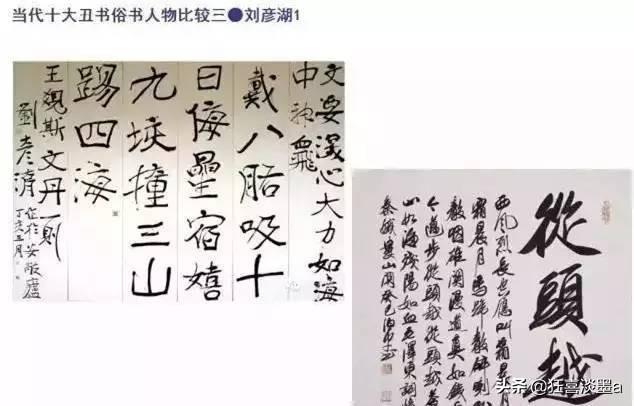 当代十大丑书俗书人物比较三●刘彦湖1
文要心大力如海
中神飛
戴八吸十
日侮星宿嬉
九垓撞三山
踢四海
王斯文丹一則
劉彦
丁亥三月
從頭越
西風烈長空雁叫霜晨月
霜晨月馬蹄聲碎喇叭
聲咽雄關漫道真如鐵
今邁步從頭越從頭越
山如海殘陽如血毛澤東詞憶
秦娥婁山關癸巳
头条 @狂喜淡墨a